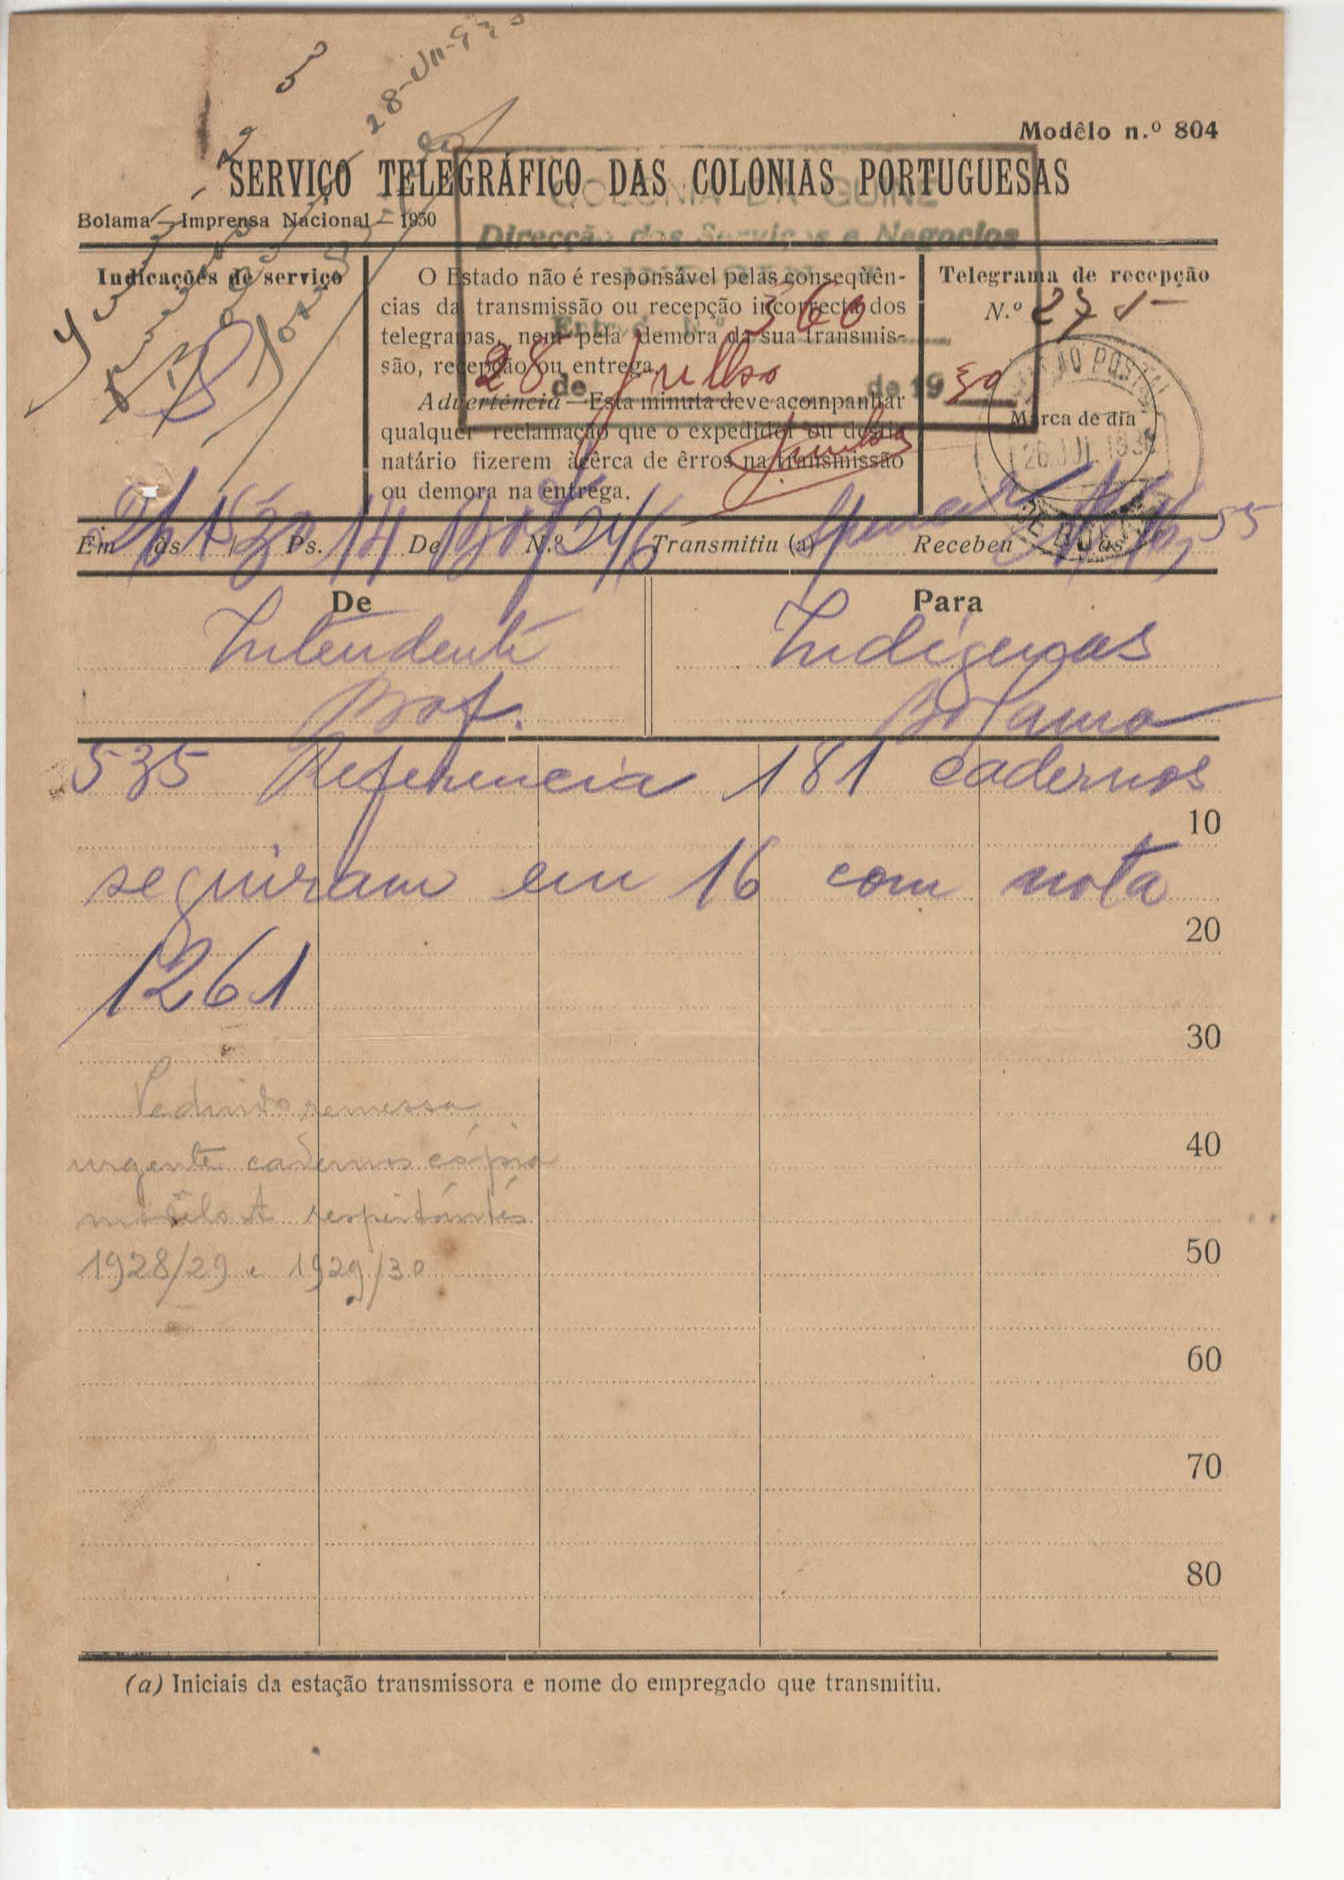 28-VII-930
Modêlo n.º 804
SERVIÇO TELEGRÁFICO DAS COLONIAS PORTUGUESAS
COLONIA DA GUINÉ
Bolama — Imprensa Nacional — 1930
Direcção dos Serviços e Negocios
Indicações de serviço
O Estado não é responsável pelas conseqùên-
cias da transmissão ou recepção incorrecta dos
telegramas, nem pela demora da sua transmis-
são, recepção ou entrega.
Advertência—Esta minuta deve acompanhar
qualquer reclamação que o expedidor ou desti-
natário fizerem àcêrca de êrros na transmissão
ou demora na entrega.
Entrada N.º 360
28 de Julho de 1930
Telegrama de recepção
N.º 271
Marca de dia
26 JUL 193
Em 26 às 15,30 Ps. 14 De Bof N.º 346 Transmitiu (a) Recebeu às 16,55
De
Para
Intendente
Indigenas
Bof.
Bolama
535 Referencia 181 cadernos
10
seguiram em 16 com nota
20
1261
30
Pedindo remessa
urgente cadernos cópia
40
modêlo A respeitantes
1928/29 e 1929/30
50
60
70
80
(a) Iniciais da estação transmissora e nome do empregado que transmitiu.